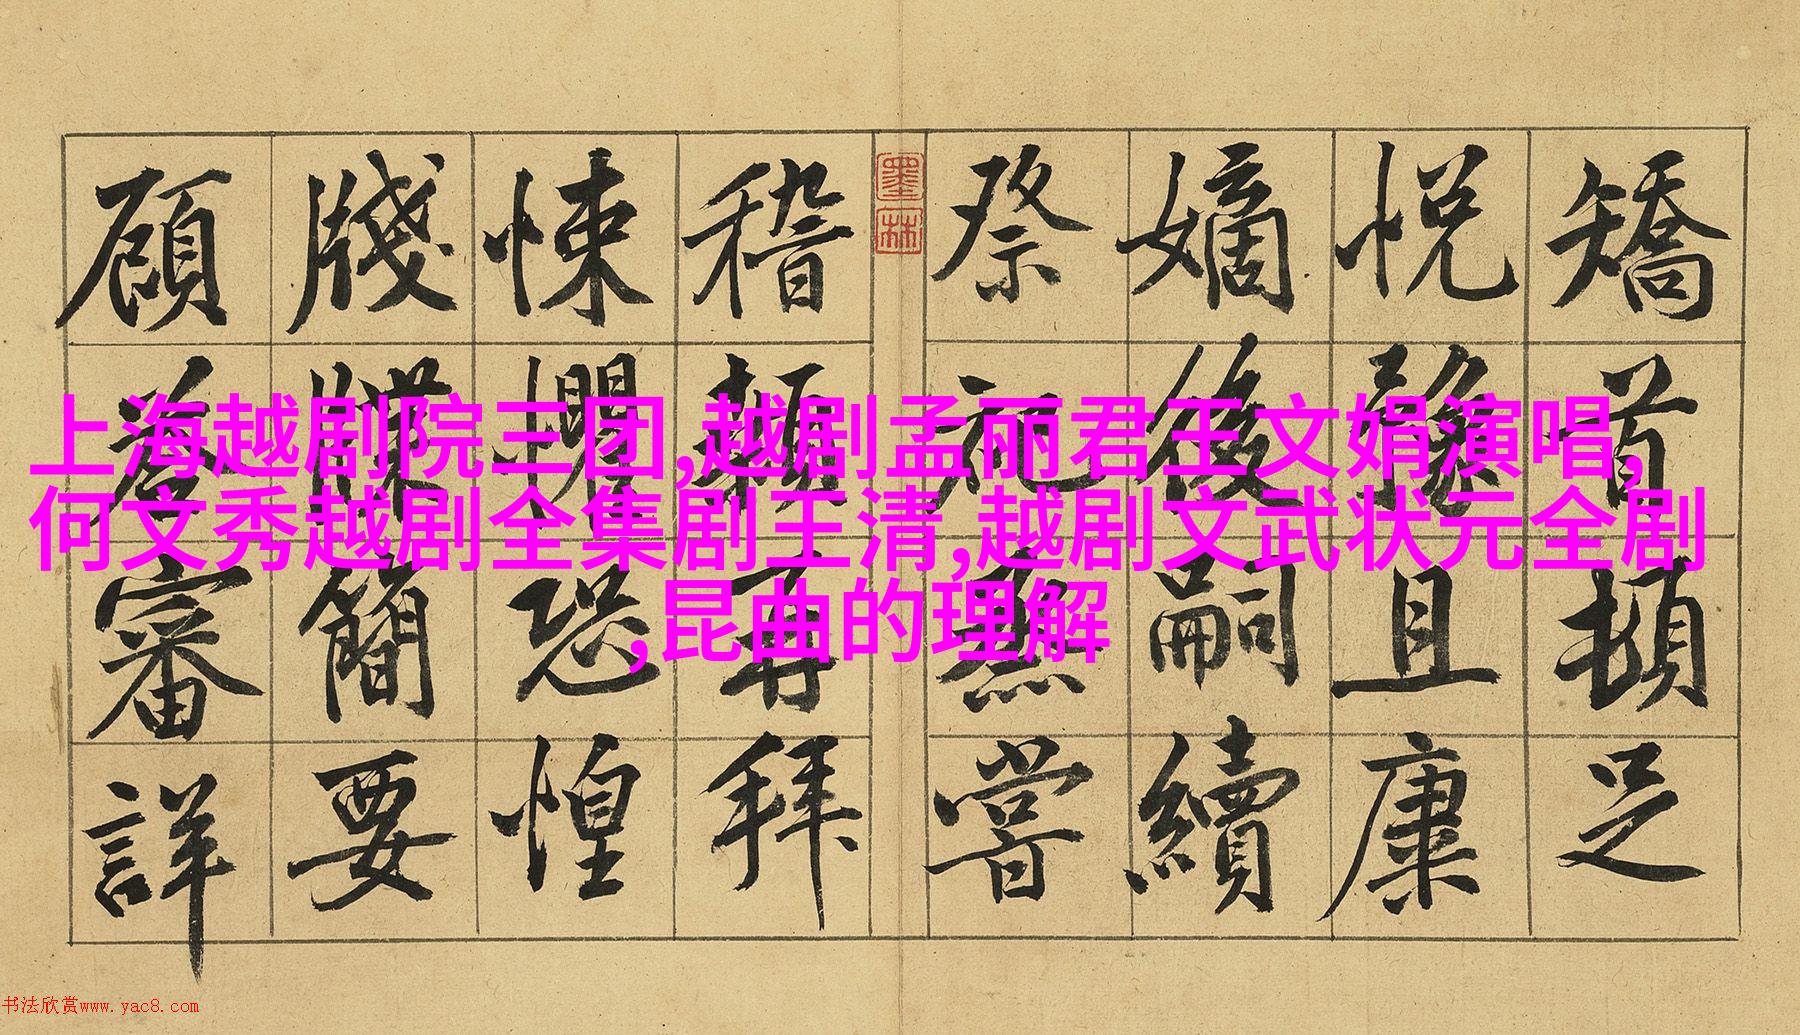 上海越剧院三团,越剧孟丽君王文娟演唱,
何文秀越剧全集剧王清,越剧文武状元全剧
,昆曲的理解
矯首頓足
悅豫且康
嫡後嗣續
祭祀蒸嘗
墨林
稽顙再拜
悚懼恐惶
牋牒簡要
顧荅審詳
书法欣赏www.yac8.com